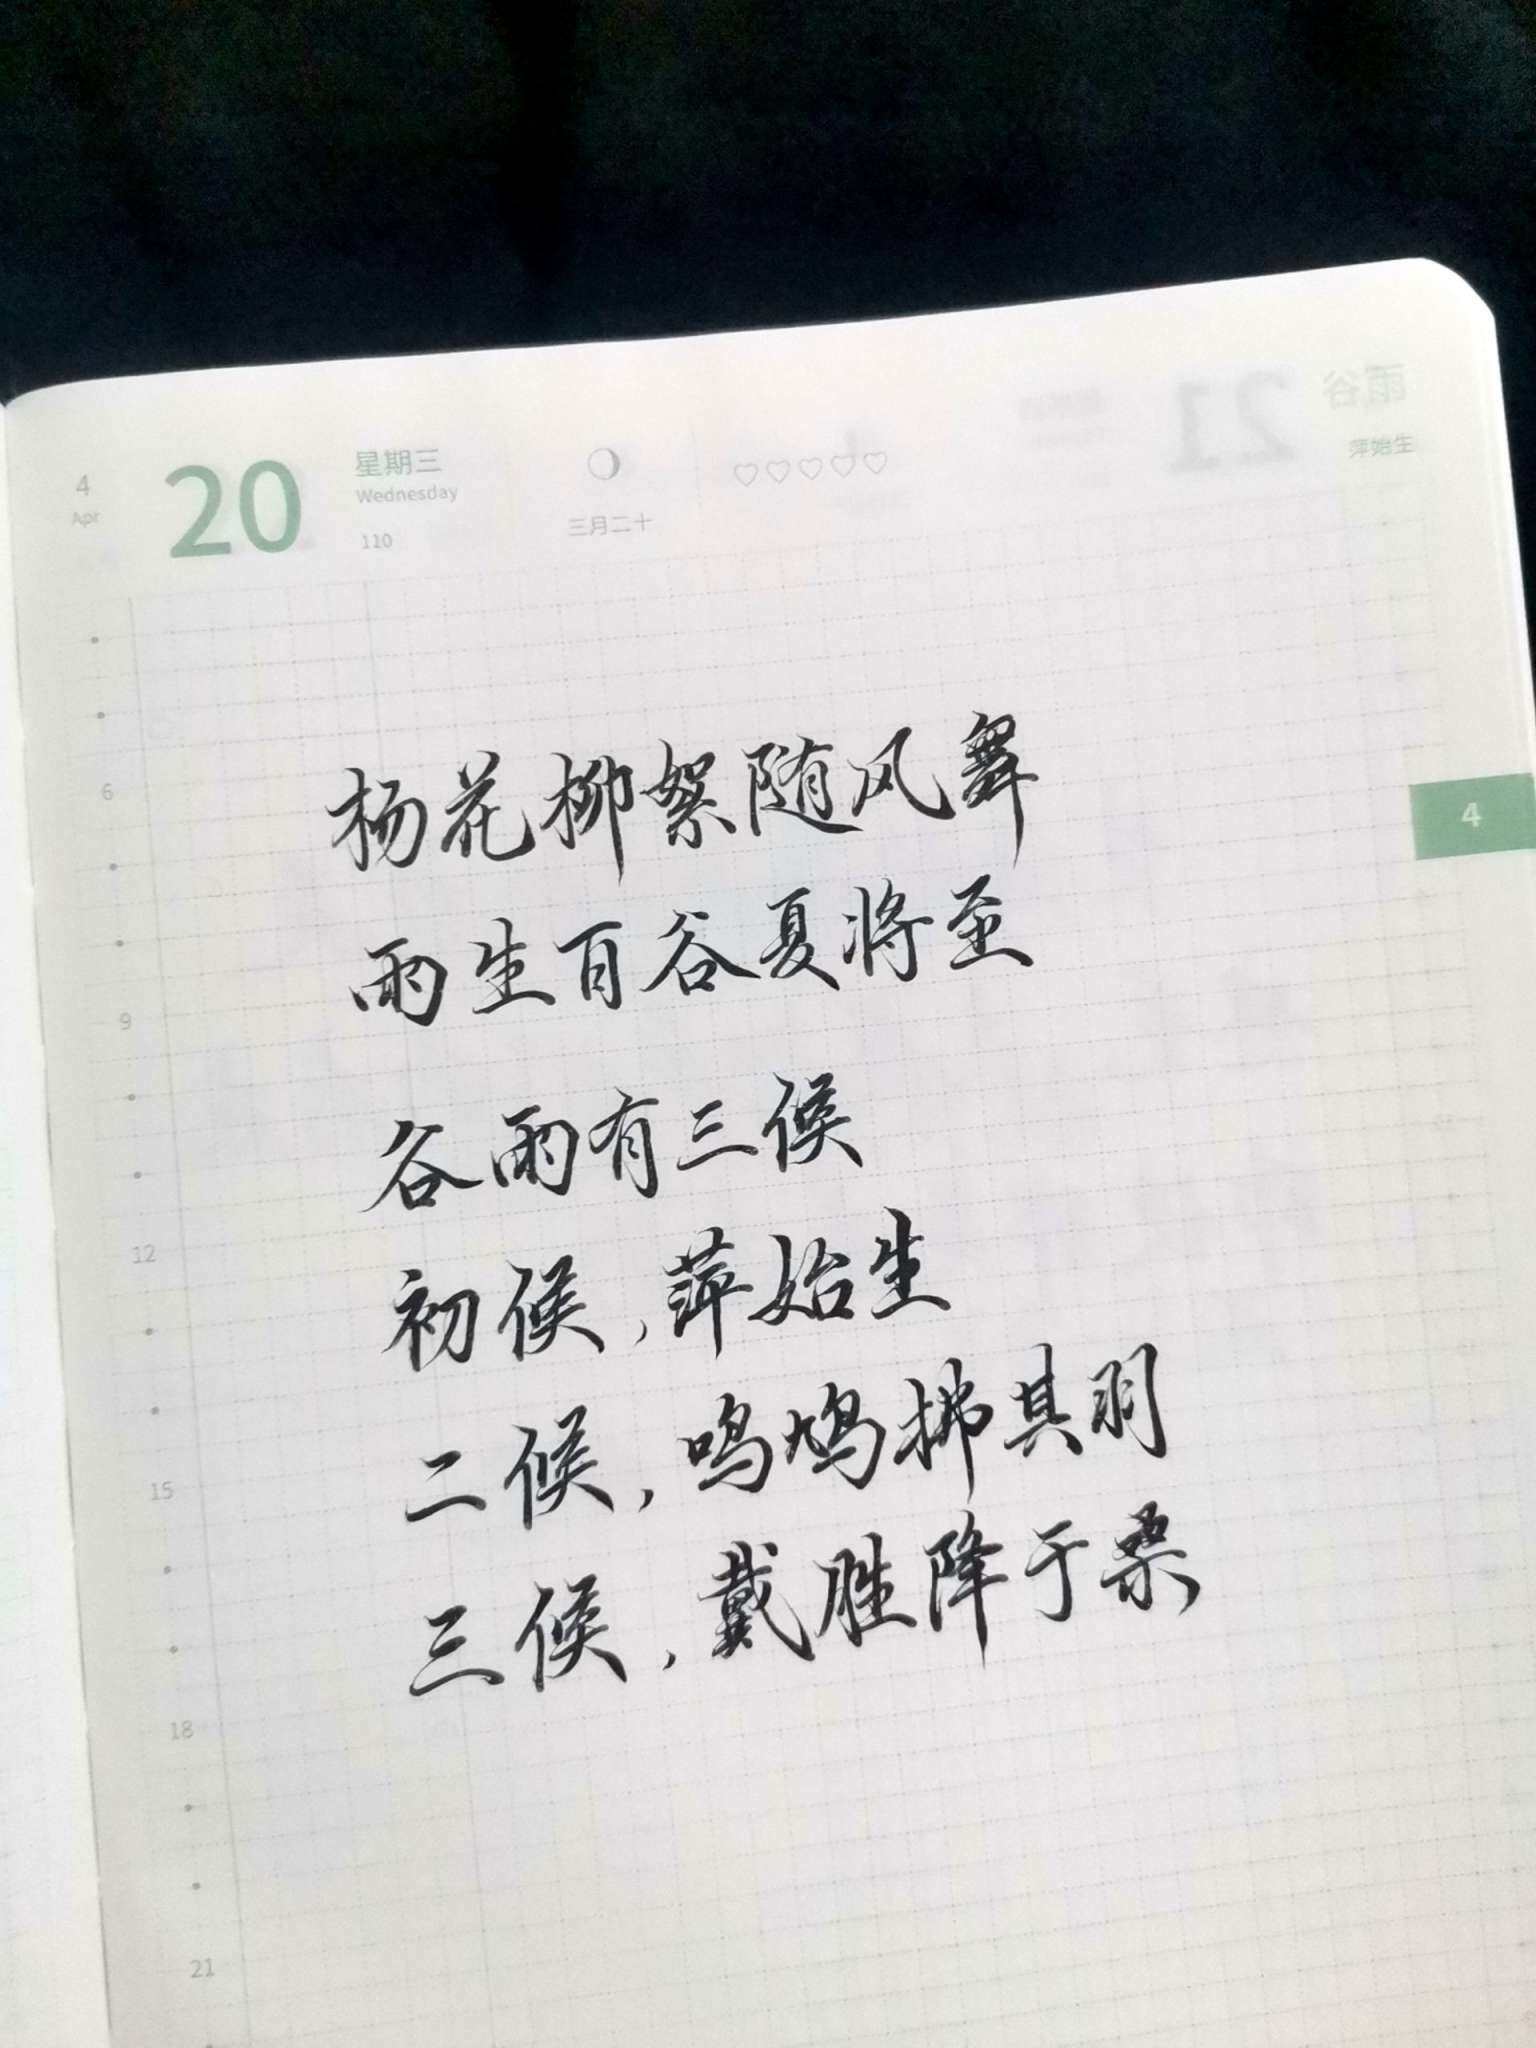 4
Apr
20
星期三
Wednesday
110
三月二十
♡♡♡♡♡
谷雨
萍始生
杨花柳絮随风舞
雨生百谷夏将至
谷雨有三候
初候,萍始生
二候,鸣鸠拂其羽
三候,戴胜降于桑
4
6
9
12
15
18
21